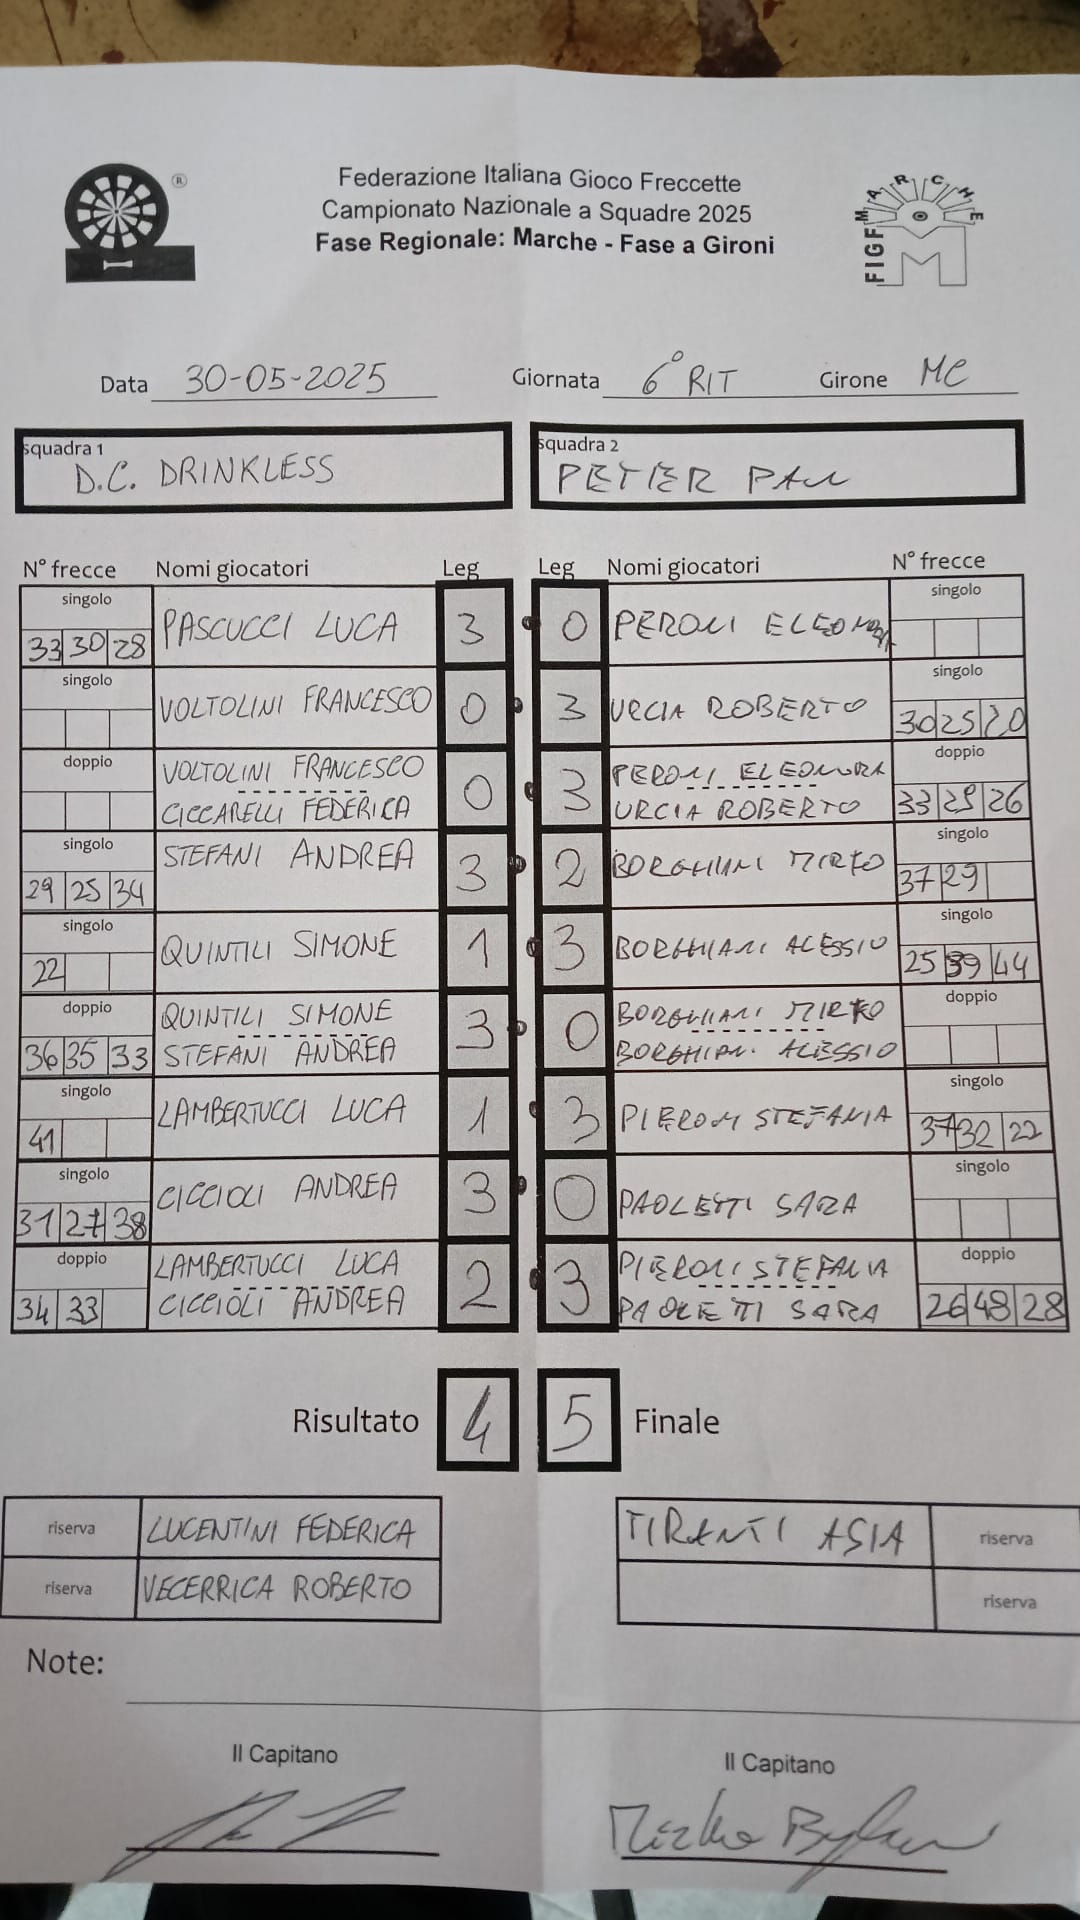 ®
FIGF MARCHE
M
Federazione Italiana Gioco Freccette
Campionato Nazionale a Squadre 2025
Fase Regionale: Marche - Fase a Gironi
Data 30-05-2025 Giornata 6° RIT Girone MC
squadra 1
D.C. DRINKLESS
squadra 2
PETER PAN
N° frecce Nomi giocatori Leg Leg Nomi giocatori N° frecce
singolo singolo
33 30 28 PASCUCCI LUCA 3 0 PERONI ELEONORA
singolo singolo
VOLTOLINI FRANCESCO 0 3 URCIA ROBERTO 30 25 20
doppio doppio
VOLTOLINI FRANCESCO PERONI ELEONORA
CICCARELLI FEDERICA 0 3 URCIA ROBERTO 33 29 26
singolo singolo
29 25 34 STEFANI ANDREA 3 2 BORGHIANI MIRKO 37 29
singolo singolo
22 QUINTILI SIMONE 1 3 BORGHIANI ALESSIO 25 39 44
doppio doppio
QUINTILI SIMONE BORGHIANI MIRKO
36 35 33 STEFANI ANDREA 3 0 BORGHIANI ALESSIO
singolo singolo
41 LAMBERTUCCI LUCA 1 3 PIERONI STEFANIA 37 32 22
singolo singolo
31 27 38 CICCIOLI ANDREA 3 0 PAOLETTI SARA
doppio doppio
LAMBERTUCCI LUCA PIERONI STEFANIA
34 33 CICCIOLI ANDREA 2 3 PAOLETTI SARA 26 48 28
Risultato 4 5 Finale
riserva LUCENTINI FEDERICA TIRANTI ASIA riserva
riserva VECERRICA ROBERTO riserva
Note:
Il Capitano Il Capitano